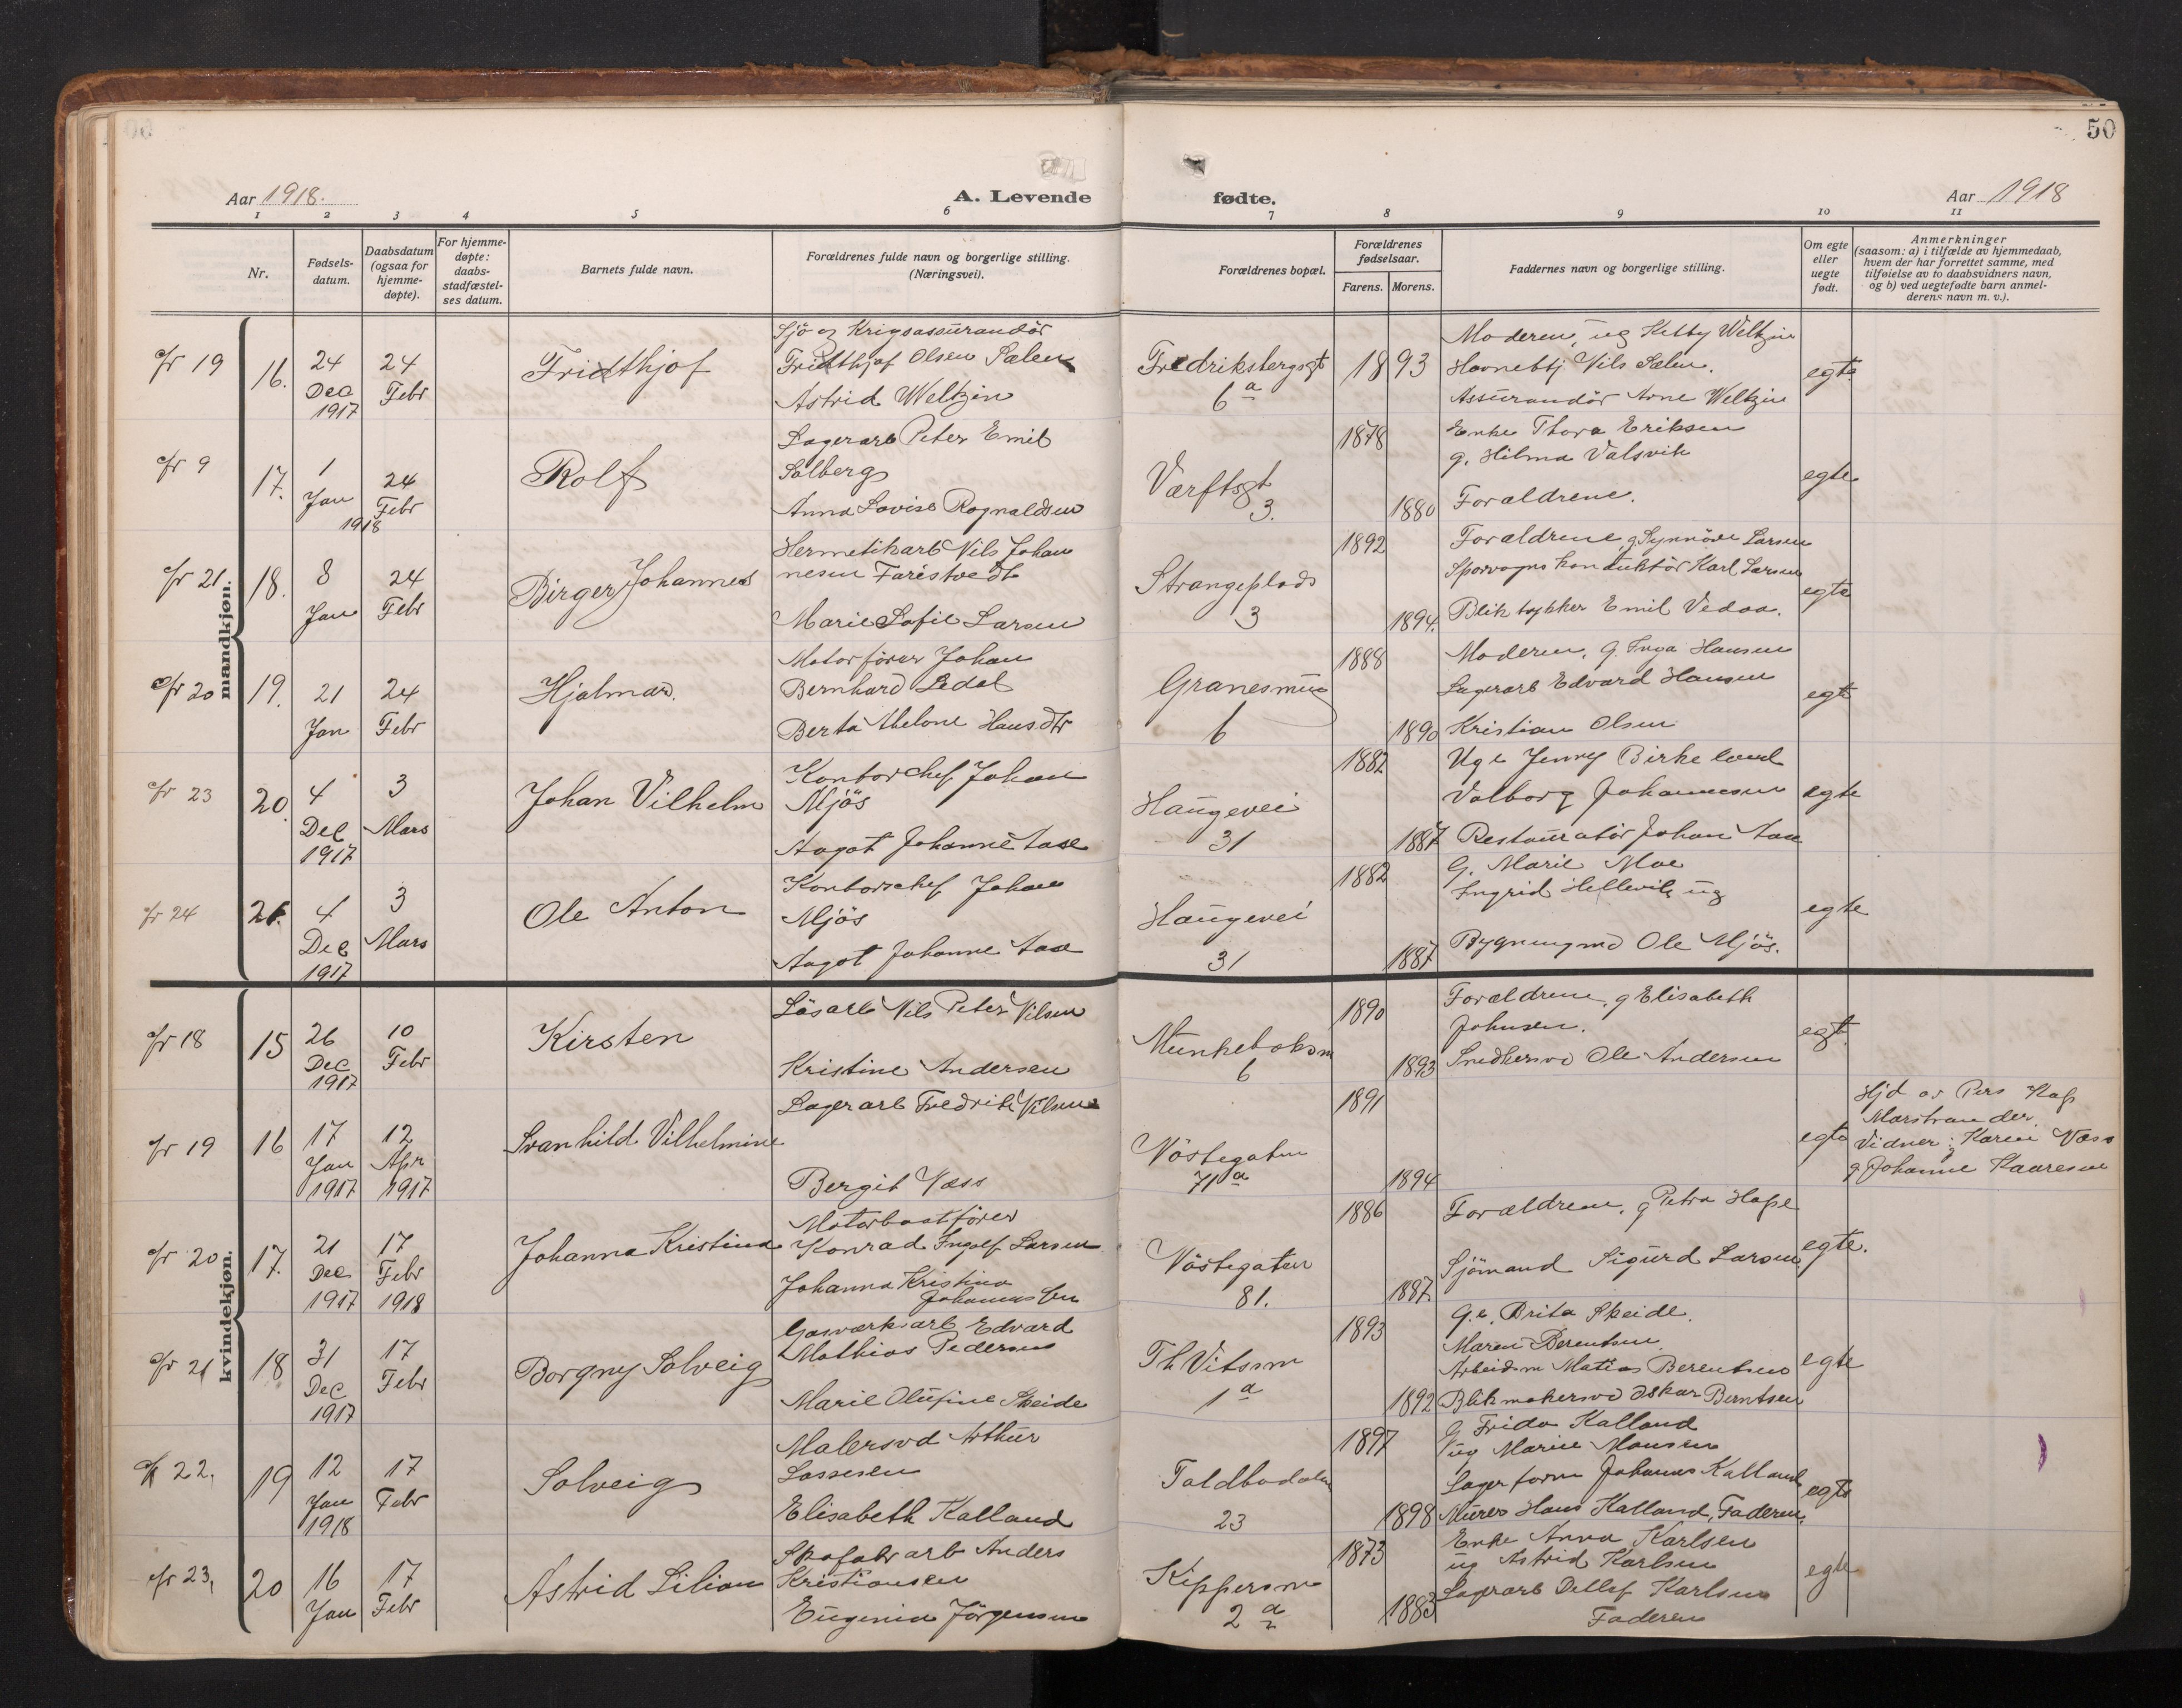 50
Aar 1918.
A. Levende
fødte.
Aar 1918
1 2 3 4 5 6 7 8 9 10 11
Nr.
Fødsels-
datum.
Daabsdatum
(ogsaa for
hjemme-
døpte).
For hjemme-
døpte:
daabs-
stadfæstel-
ses datum.
Barnets fulde navn.
Forældrenes fulde navn og borgerlige stilling.
(Næringsvei).
Forældrenes bopæl.
Forældrenes
fødselsaar.
Farens. Morens.
Faddernes navn og borgerlige stilling.
Om egte
eller
uegte
født.
Anmerkninger
(saasom: a) i tilfælde av hjemmedaab,
hvem der har forrettet samme, med
tilføielse av to daabsvidners navn,
og b) ved uegtefødte barn anmel-
derens navn m. v.).
mandkjøn.
19
16.
24
Dec
1917
24
Febr
Fridthjof
Sjö og Krigsassurandör
Fridthjof Olsen Sælen
Astrid Weltzin
Fredriksbergsgt
6a
1893
Moderen, ug Ketty Weltzin
Havnebtj Nils Sælen.
Assurandör Arne Weltzin
egte
9
17.
1
Jan
1918
24
Febr
Rolf
Lagerarb Peter Emil
Solberg
Anna Lovise Rognaldsen
Værftsgt
3.
1878
1880
Enke Thora Eriksen
g. Hilma Valsvik
Forældrene.
egte
21.
18.
8
Jan
24
Febr
Birger Johannes
Hermetikarb Nils Johan
nesen Farestvedt
Marie Sofie Larsen
Strangeplads
3
1892
1894.
Forældrene, g Synnöve Larsen
Sporvognskonduktör Karl Larsen
Bliktrykker Emil Vedaa.
egte
20
19.
21
Jan
24
Febr
Hjalmar.
Motorförer Johan
Bernhard Ledal
Berta Helone Hansdtr
Granesmug
6
1888
1890
Moderen, g. Inga Hansen
Lagerarb Edvard Hansen
Kristian Olsen
egte
23
20.
4
Dec
1917
3
Mars
Johan Vilhelm
Kontorchef Johan
Mjös
Aagot Johanne Aase
Haugevei
31
1882
1887
Ug Jenny Birkeland
Valborg Johannesen
Restauratör Johan Aase
egte
24
21.
4
Dec
1917
3
Mars
Ole Anton
Kontorschef Johan
Mjös
Aagot Johanne Aase
Haugevei
31
1882
1887
G. Marie Moe
Ingrid Hellevik ug
Bygningsmd Ole Mjös.
egte
kvindekjøn.
18
15
26
Dec
1917
10
Febr
Kirsten
Lösarb Nils Peter Nilsen
Kristine Andersen
Munkeboksm
6
1890
1893
Forældrene, g Elisabeth
Johnsen.
Snedkersvd Ole Andersen
egte
19
16
17
Jan
1917
12
Apr
1917
Svanhild Vilhelmine
Lagerarb Fredrik Nilsen
Bergit Næss
Nöstegaten
71a
1891
1894
egte
Hjd av Pers Kap
Marstrander.
Vidner: Karen Næss
g Johanne Kaaresen
20
17.
21
Dec
1917
17
Febr
1918
Johanna Kristina
Motorbaatförer
Konrad Ingolf Larsen
Johanna Kristina
Johannessen
Nöstegaten
81.
1886
1887
Forældrene, g Petra Hope
Sjömand Sigurd Larsen
egte.
21
18
31
Dec
1917
17
Febr
Borgny Solveig
Gasværksarb Edvard
Mathias Pedersen
Marie Olufine Skeide
Th Vitssm
1a
1893
1892
G.e. Brita Skeide.
Maren Berentsen
Arbeidsm Matias Berentsen
Blikmakersvd Oskar Berntsen
egte
22.
19
12
Jan
1918
17
Febr
Solveig
Malersvd Arthur
Lassesen
Elisabeth Kalland
Toldbodalm
23
1897
1898
G Frida Kalland
ug Marie Monsen
Lagerform Johannes Kalland
Murer Hans Kalland, Faderen.
egte
23,
20
16
Jan
17
Febr
Astrid Lilian
Skofabr arb Anders
Kristiansen
Eugenia Jörgensen
Kippersm
2a
1873
1883
Enke Anna Karlsen
ug Astrid Karlsen
Lagerarb Detlef Karlsen
Faderen
egte